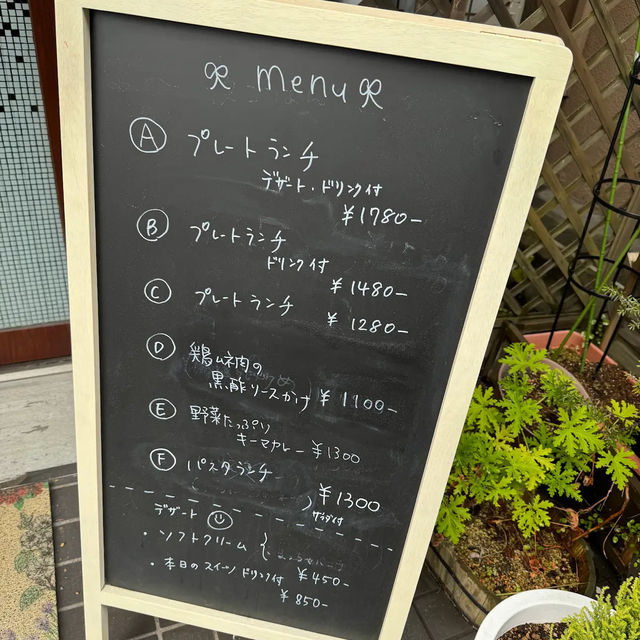 menu
A プレートランチ
デザート・ドリンク付
¥1780-
B プレートランチ
ドリンク付
¥1480-
C プレートランチ
¥1280-
D 鶏ムネ肉の
黒酢ソースがけ ¥1100-
E 野菜たっぷり
キーマカレー ¥1300
F パスタランチ
¥1300
サラダ付
デザート
・ソフトクリーム {
¥450-
・本日のスイーツ ドリンク付
¥850-